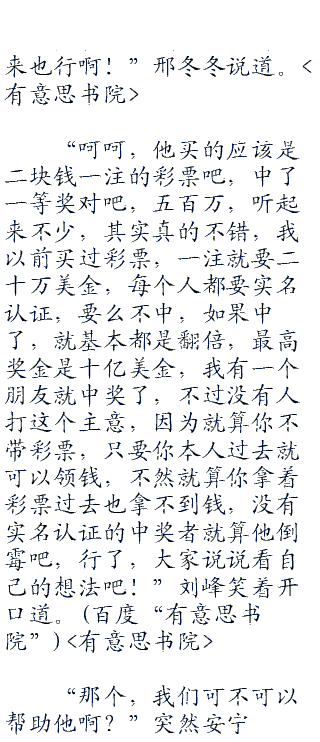 来也行啊！”邢冬冬说道。<
有意思书院>
“呵呵，他买的应该是
二块钱一注的彩票吧，中了
一等奖对吧，五百万，听起
来不少，其实真的不错，我
以前买过彩票，一注就要二
十万美金，每个人都要实名
认证，要么不中，如果中
了，就基本都是翻倍，最高
奖金是十亿美金，我有一个
朋友就中奖了，不过没有人
打这个主意，因为就算你不
带彩票，只要你本人过去就
可以领钱，不然就算你拿着
彩票过去也拿不到钱，没有
实名认证的中奖者就算他倒
霉吧，行了，大家说说看自
己的想法吧！”刘峰笑着开
口道。(百度“有意思书
院”)<有意思书院>
“那个，我们可不可以
帮助他啊？”突然安宁